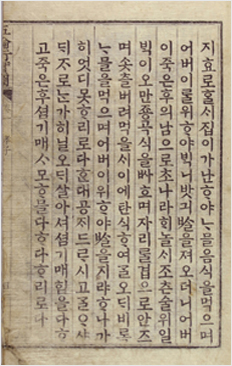 지효로ᄒᆞᆯᄉᆡ집이가난ᄒᆞ야ᄂᆞ믈음식을먹으며
어버이ᄅᆞᆯ위ᄒᆞ야ᄇᆡᆨ니밧긔ᄡᆞᆯ을져오더니어버
이죽은후의남으로초나라ᄒᆡ놀ᄉᆡ조ᄎᆞᆫ술위일
ᄇᆡᆨ이오만죵곡식을ᄡᅡ흐며자리ᄅᆞᆯ겹으로안ᄌᆞ
며솟츨버려먹을ᄉᆡ이에탄식ᄒᆞ여ᄀᆞᆯ오ᄃᆡ비록
ᄂᆞ믈을먹으며어버이위ᄒᆞ야ᄡᆞᆯ을지랴ᄒᆞ나가
히엇디못ᄒᆞ리로다ᄒᆞᆫ대공ᄌᆡ드ᄅᆞ시고ᄀᆞᆯᄋᆞ샤
ᄃᆡᄌᆞ로ᄂᆞᆫ가히닐오ᄃᆡ살아셔셤기매힘을다ᄒᆞ
고죽은후셤기매ᄉᆞ모ᄒᆞᆷ을다ᄒᆞ다ᄒᆞ리로다